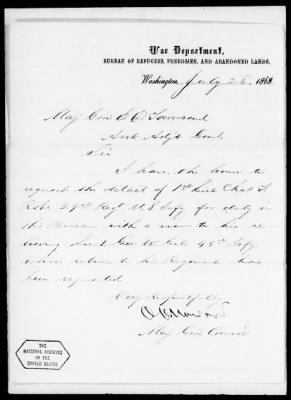 War Department,
BUREAU OF REFUGEES, FREEDMEN, AND ABANDONED LANDS,
Washington, July 25, 1868
Maj Gen E. D. Townsend
Asst Adjt Genl.
Sir
I have the honor to
request the detail of 1st Lieut Chas S
Robe 29th Regt U.S. Infy for duty in
this Bureau with a view to his re-
lieving Lieut Geo 45th Infy
whose return to his Regiment has
been requested
Very Respectfully
O O Howard
Maj Gen Comr
THE
NATIONAL ARCHIVES
OF THE
UNITED STATES